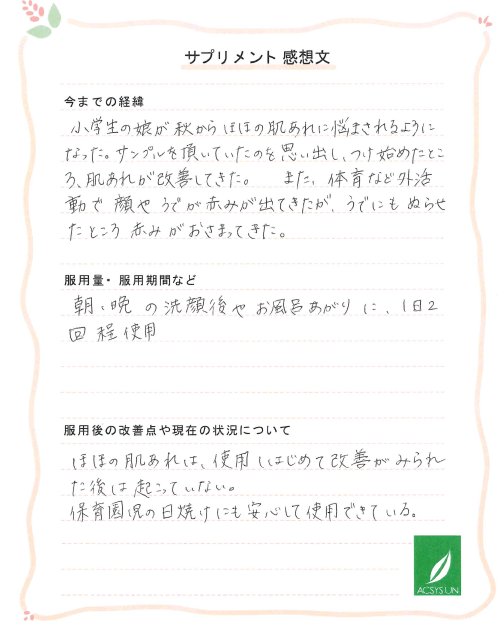 サプリメント 感想文
今までの経緯
小学生の娘が秋からほほの肌あれに悩まされるように
なった。サンプルを頂いていたのを思い出し、つけ始めたとこ
ろ、肌あれが改善してきた。 また、体育など外活
動で 顔や うでが赤みが出てきたが、うでにも ぬらせ
たところ 赤みがおさまってきた。
服用量・服用期間など
朝・晩 の洗顔後や お風呂あがり に、1日2
回 程 使用
服用後の改善点や現在の状況について
ほほの肌あれは、使用しはじめて改善がみられ
た後は 起こっていない。
保育園児の日焼けにも安心して使用できている。
ACSYS UN